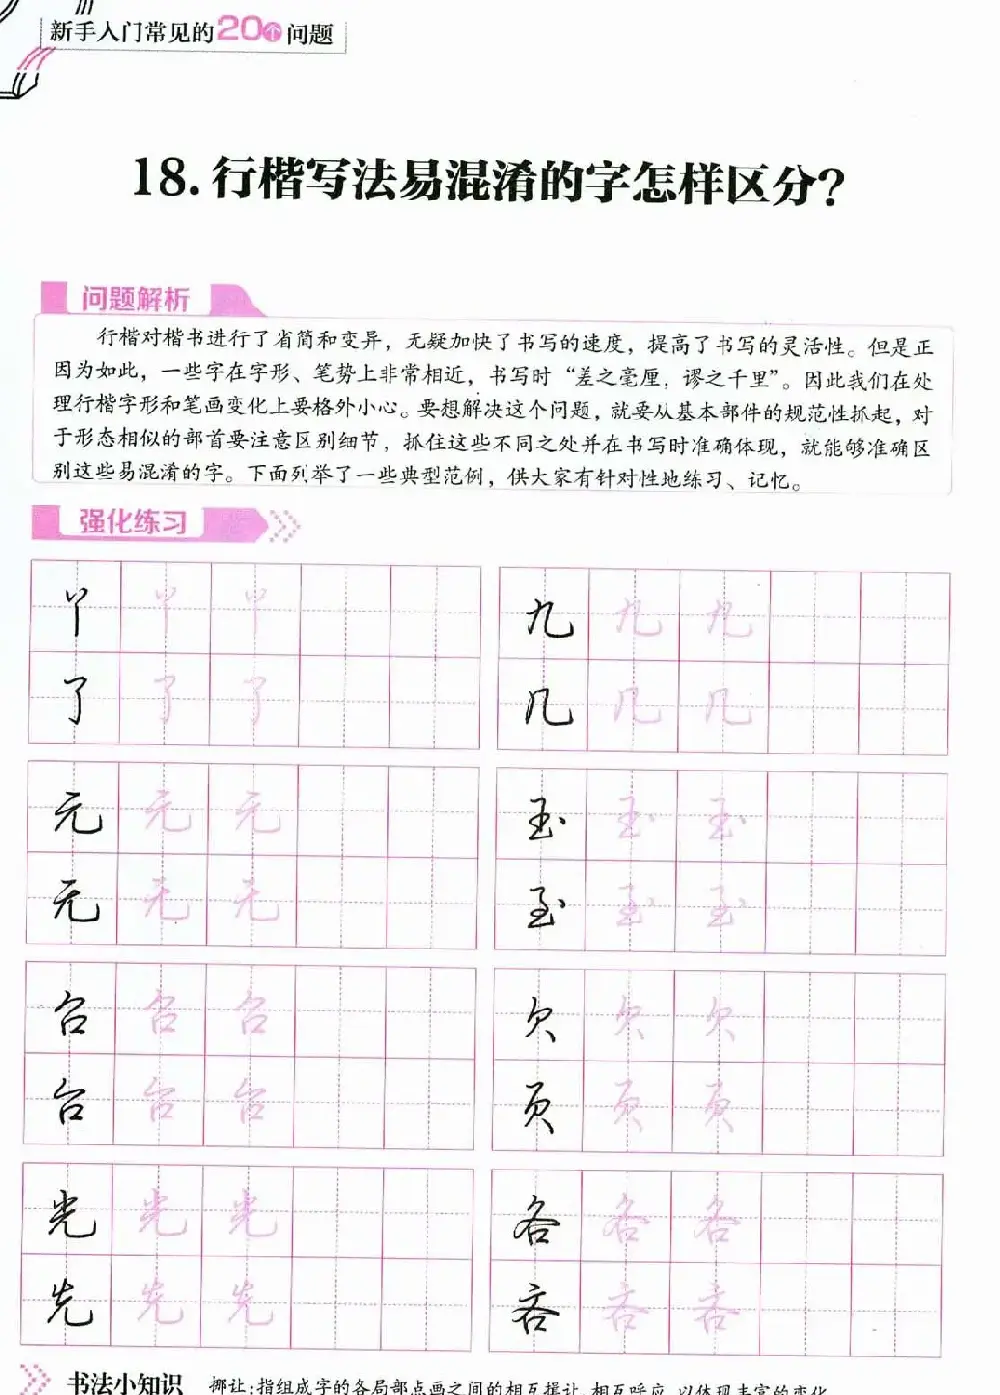 新手入门常见的20个问题
18.行楷写法易混淆的字怎样区分?
问题解析
行楷对楷书进行了省简和变异，无疑加快了书写的速度，提高了书写的灵活性。但是正
因为如此，一些字在字形、笔势上非常相近，书写时“差之毫厘，谬之千里”。因此我们在处
理行楷字形和笔画变化上要格外小心。要想解决这个问题，就要从基本部件的规范性抓起，对
于形态相似的部首要注意区别细节，抓住这些不同之处并在书写时准确体现，就能够准确区
别这些易混淆的字。下面列举了一些典型范例，供大家有针对性地练习、记忆。
强化练习
丫 丫 丫
了 了 了
九 九 九
几 几 几
元 元 元
无 无 无
玉 玉 玉
至 至 至
召 召 召
台 台 台
欠 欠 欠
页 页 页
光 光 光
先 先 先
各 各 各
吝 吝 吝
书法小知识 挪让:指组成字的各局部点画之间的相互揖让,相互呼应,以体现丰富的变化